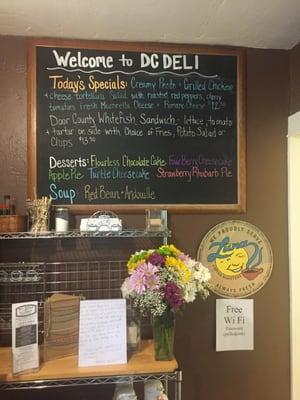 Welcome to DC DELI
Today's Specials: Creamy Pesto + Grilled Chicken
+ cheese tortellini Salad with roasted red peppers, cherry
tomatoes fresh Mozzarella Cheese + Romano Cheese $12.50
Door County Whitefish Sandwich - lettuce, tomato
+ tartar on side with Choice of Fries, Potato Salad or
Chips $13.50
Desserts: Flourless Chocolate Cake Four Berry Cheesecake
Apple Pie Turtle Cheesecake Strawberry Rhubarb Pie
Soup: Red Bean + Andouille
PROUDLY SERVE
ALWAYS FRESH
Free
Wi Fi
Password